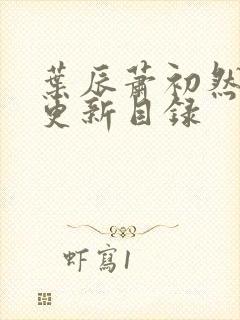 葉辰蕭初然
更新目録
虾寫1